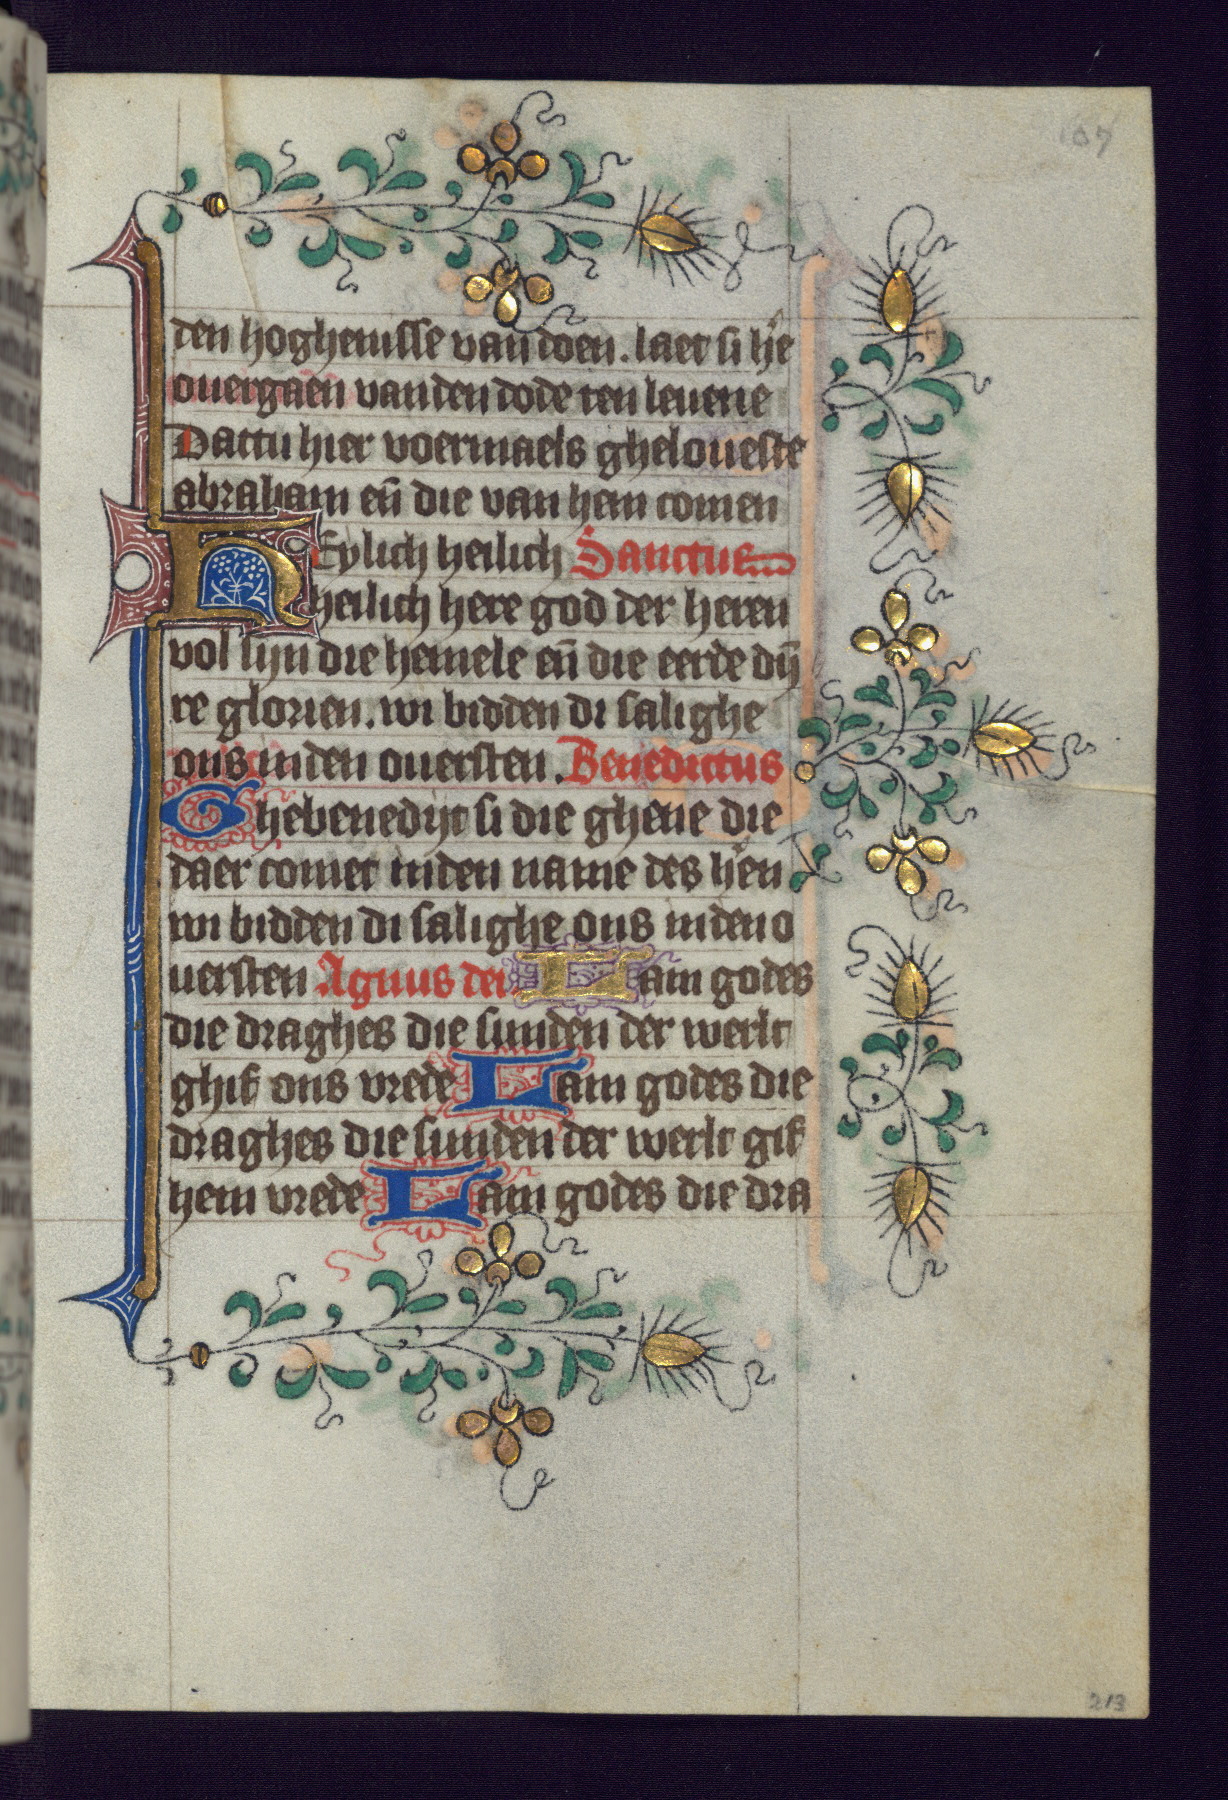 107
den hoghenisse van doen. laet si h̾e
ouergaen vanden dode ten leuene
Dattu hier voermaels gheloueste
abraham en̄ die van hem comen
HEylich heilich Sanctus
heilich here god der heren
vol sijn die hemele en̄ die eerde dy̅
re glorien. wi bidden di salighe
ons inden ouersten. Benedictus
Ghebenedijt si die ghene die
daer comet inden name des h̾en
wi bidden di salighe ons inden o
uersten Agnus dei Lam godes
die draghes die sunden der werlt
ghif ons vrede Lam godes die
draghes die sunden der werlt gif
hem vrede Lam godes die dra
213